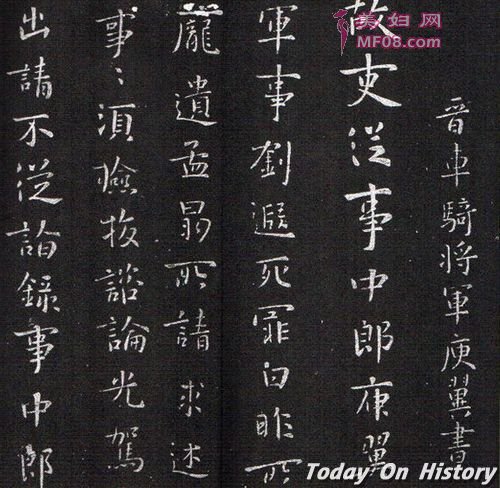 美妇网
MF08.com
晉車騎將軍庾翼書
故吏從事中郎庾翼
軍事劉遐死罪白昨所
龐遺孟昺所請求述
事〻須檢校諮論光駕
出請不從諮錄事中郎
Today On History